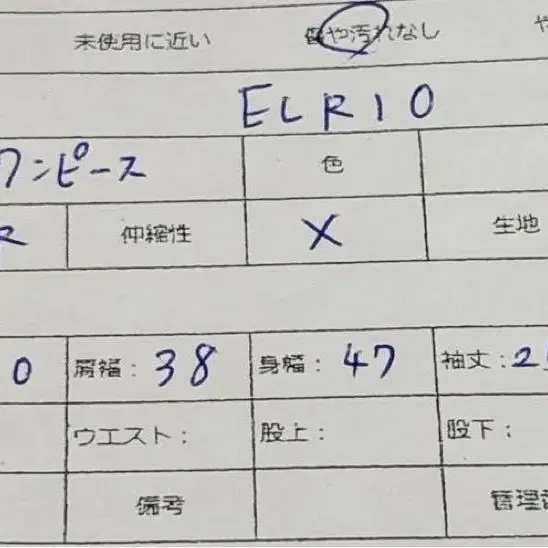 未使用に近い 傷や汚れなし や
ELRIO
ワンピース 色
伸縮性 X 生地
0 肩幅: 38 身幅: 47 袖丈: 2
ウエスト: 股上: 股下:
備考 管理